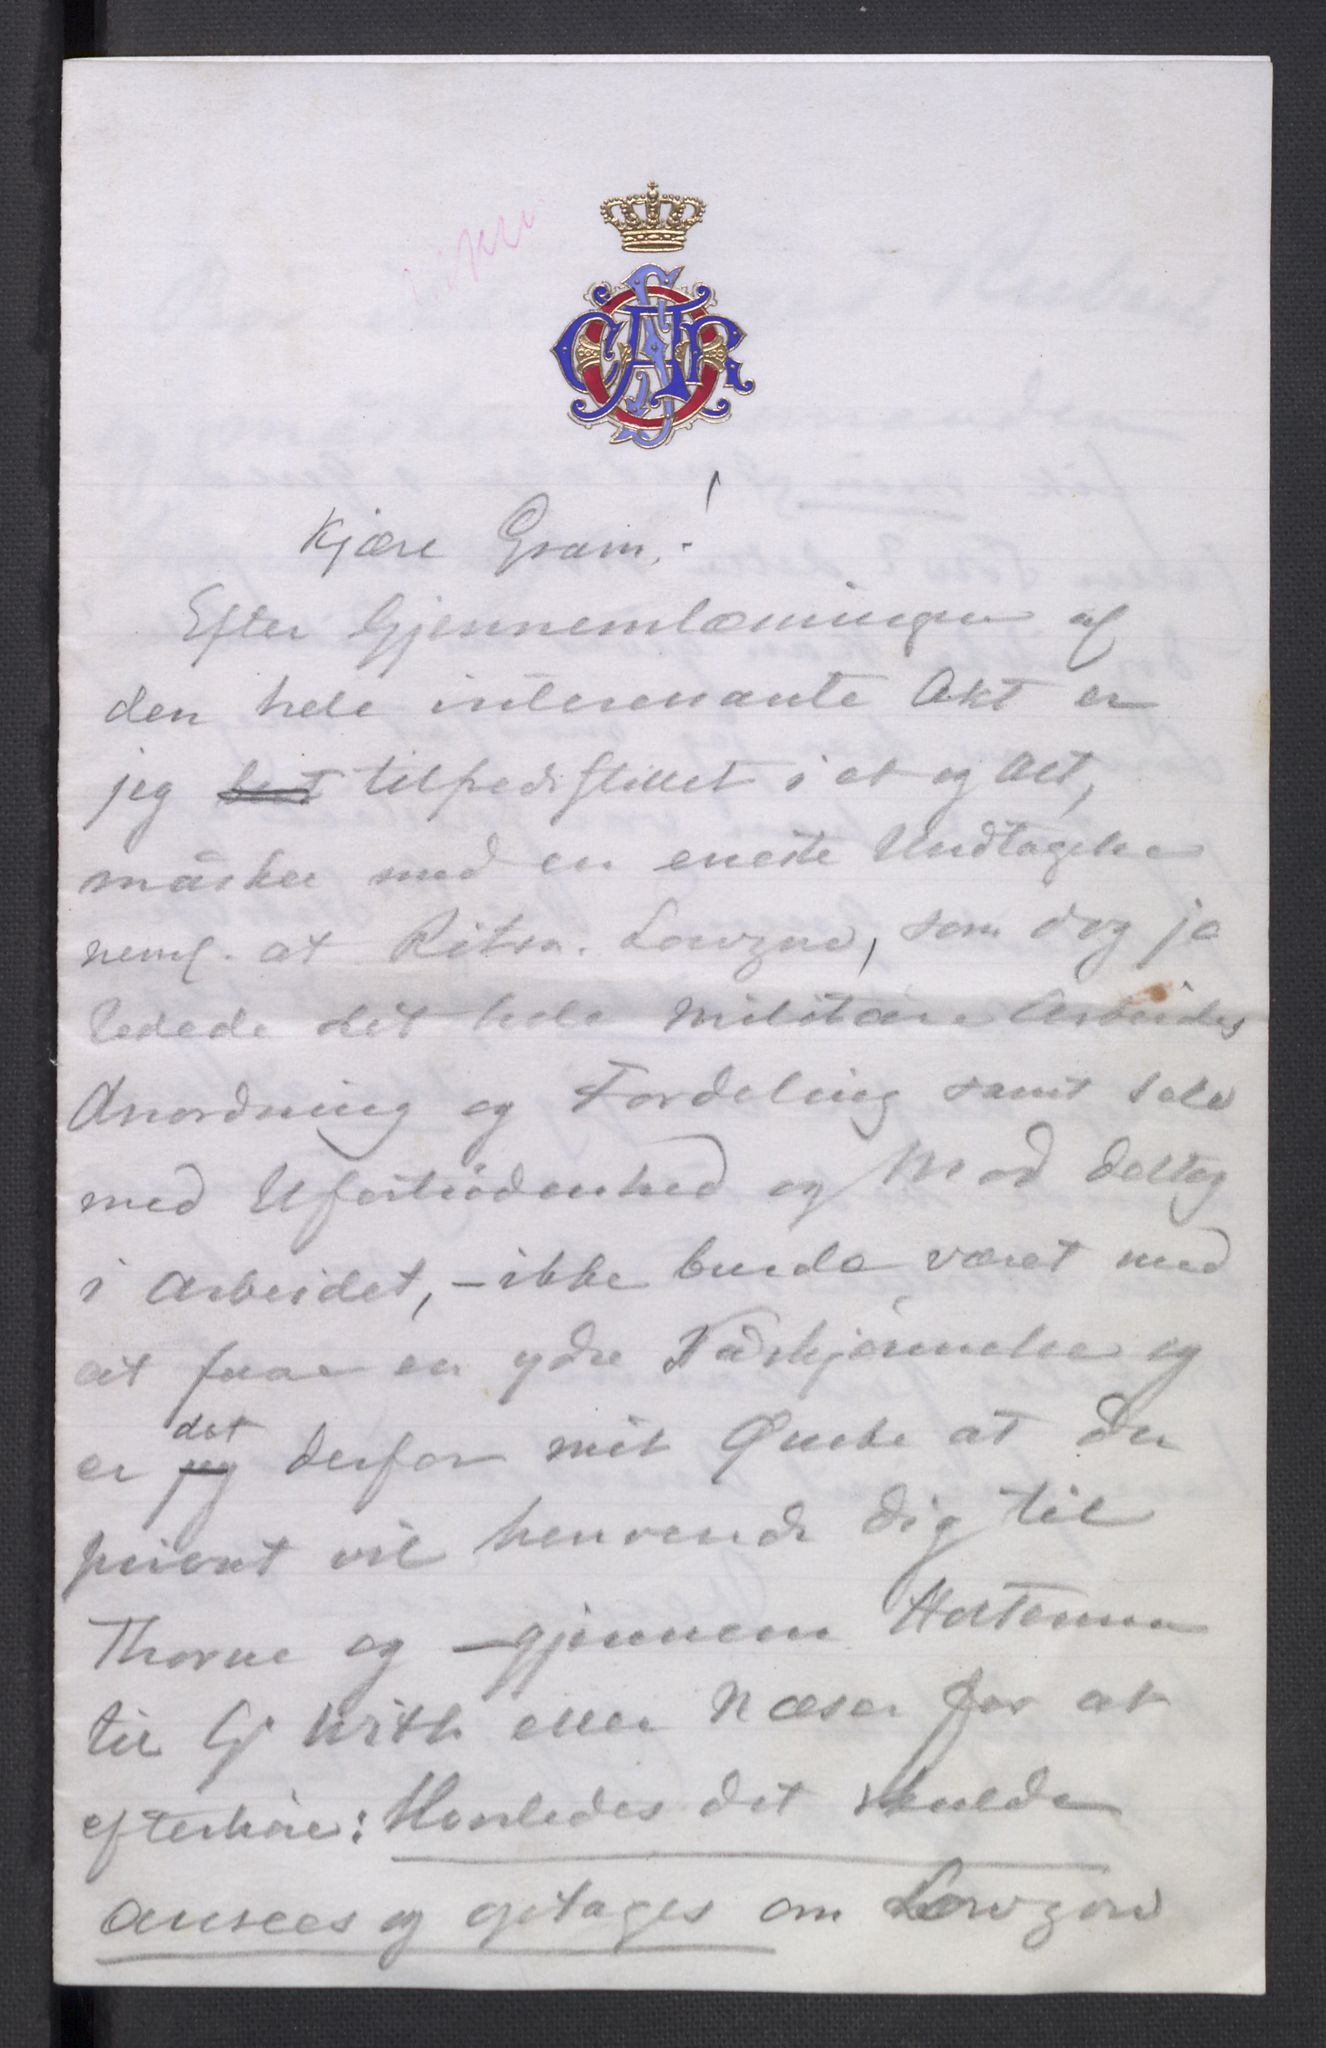 Kjære Gram!
Efter Gjennemlæsningen af
den hele interessante Akt er
jeg tilfredsstillet i et og Alt,
måskee med en eneste Undtagelse
neml. at Ritm. Lowzow, som dog jo
ledede det hele militære Arbeides
Anordning og Fordeling samt selv
med Ufortrødenhed og Mod deltog
i Arbeidet, – ikke burde været med
at faae en ydre Påskjønnelse og
er jeg det derfor mit Ønske at Du
privat vil henvende Dig til
Thorne og – gjennem Holterman
til G With eller Næser for at
efterhøre: Hvorledes det skulde
ansees og optages om Lowzow